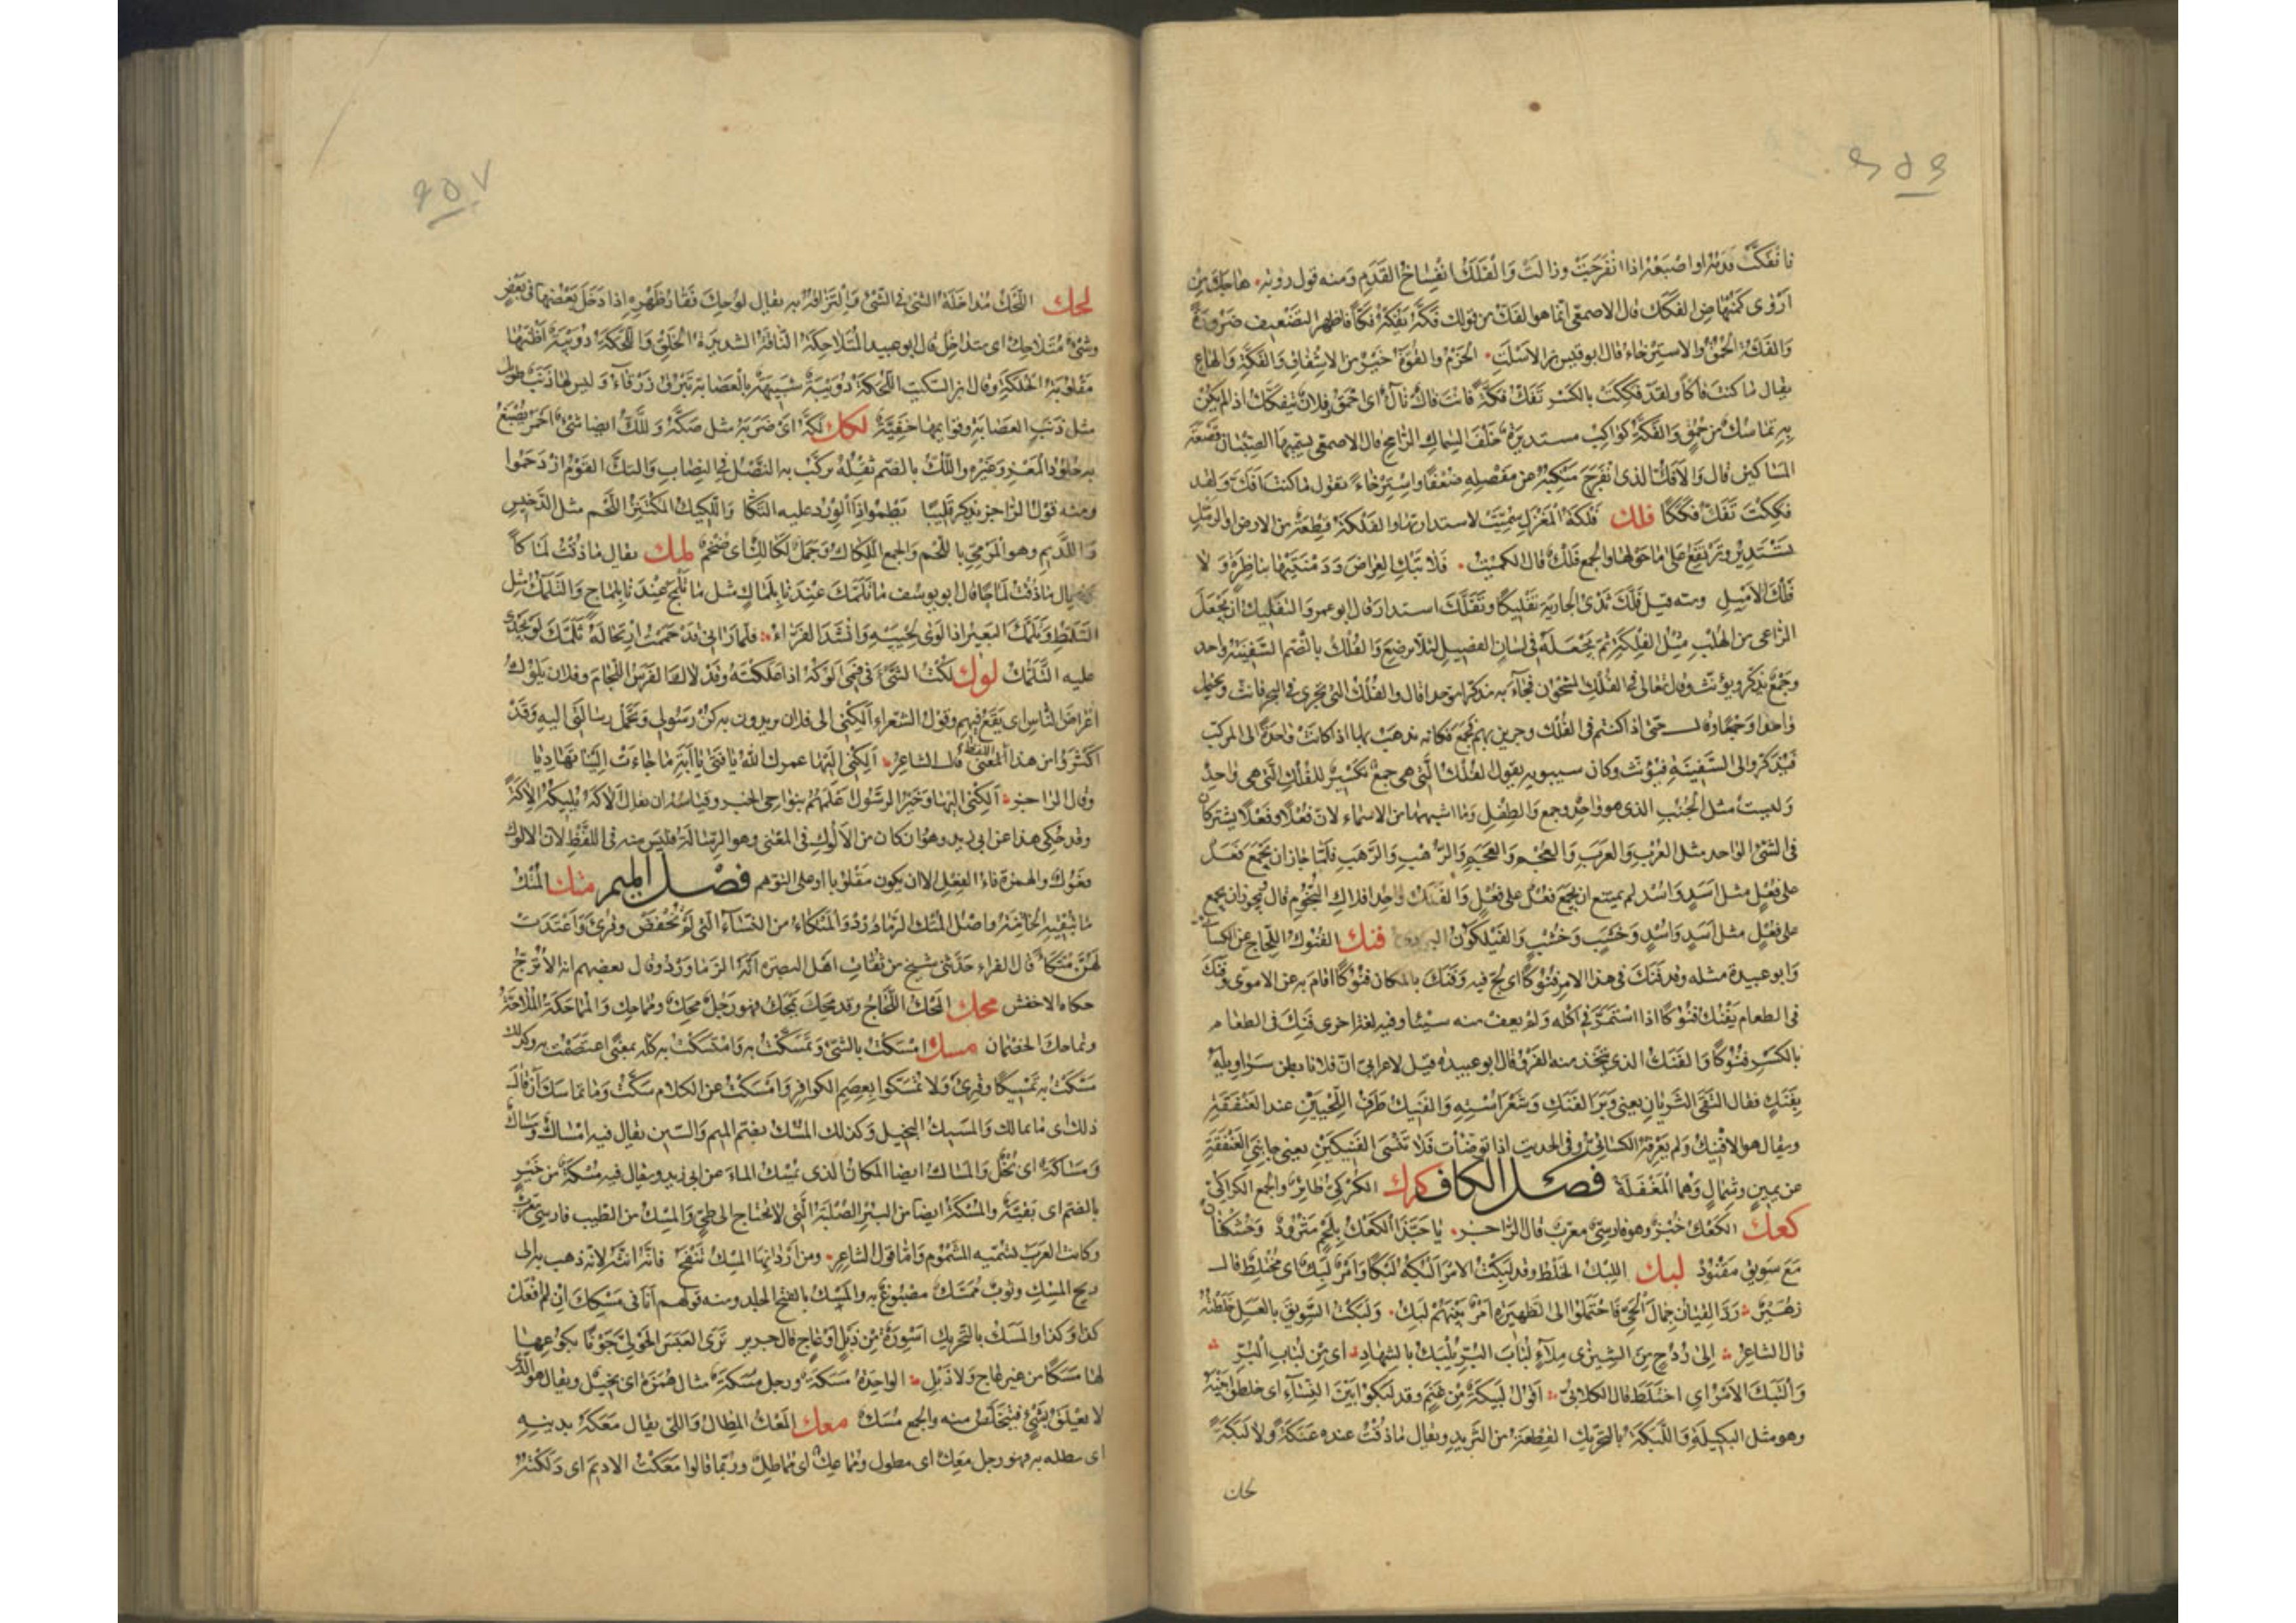 ٩٥٦
فانفكت قدمه او اصبعه اذا انفرجت وزالت والفكك انفساخ القدم ومنه قول روبة هاجك من
اروى كمنهاض الفكك قال الاصمعي انما هو الفك من قولك فكه يفكه فكا فاظهر التضعيف ضرورة
والفكة الحمق والاسترخاء قال ابو قيس بن الاسلت الحزم والقوة خير من الاشفاق والفكة والهاع
يقال ما كنت فاكا ولقد فككت بالكسر تفك فكة فانت فاك تاك اى احمق وفلان يتفكك اذا لم يكن
به تماسك من حمق والفكة كواكب مستديرة خلف السماك الرامح قال الاصمعي يسميها الصبيان قصعة
المساكين قال والافك الذى انفرج منكبه عن مفصله ضعفا واسترخاء تقول ما كنت افك ولقد
فككت تفك فككا فلك فلكة المغزل سميت لاستدارتها والفلكة قطعة من الارض او الرمل
تستدير وترتفع على ما حولها والجمع فلك قال الكميت فلا تبك العراص ودمنتيها بناظرة ولا
فلك الاميل ومنه قيل فلك ثدى الجارية تفليكا وتفلك استدار قال ابو عمرو التفليك ان يجعل
الراعى من الهلب مثل الفلكة ثم يجعله فى لسان الفصيل لئلا يرضع والفلك بالضم السفينة واحد
وجمع يذكر ويؤنث وقال تعالى فى الفلك المشحون فجاء به مذكرا موحدا قال والفلك التى تجرى فى البحر فانث ويحتمل
واحدا وجمعا وقال حتى اذا كنتم فى الفلك وجرين بهم فجمع فكانه يذهب بها اذا كانت واحدة الى المركب
فيذكر والى السفينة فيؤنث وكان سيبويه يقول الفلك التى هى جمع تكسير للفلك التى هى واحد
وليست مثل الجنب الذى هو واحد وجمع والطفل وما اشبههما من الاسماء لان فعلا وفعلا يشتركان
فى الشئ الواحد مثل العرب والعرب والعجم والعجم والرهب والرهب فلما جاز ان يجمع فعل
على فعل مثل اسد واسد لم يمتنع ان يجمع فعل على فعل والفلك واحد افلاك النجوم قال ويجوز ان يجمع
على فعل مثل اسد واسد وخشب وخشب والفيلكون البردى فنك الفنوك اللجاج عن الكسائى
وابو عبيدة مثله وقد فنك فى هذا الامر فنوكا اى لج فيه وفنك بالمكان فنوكا اقام به عن الاموى وفنك
فى الطعام يفنك فنوكا اذا استمر فى اكله ولم يعف منه شيئا وفيه لغة اخرى فنك فى الطعام
بالكسر فنوكا والفنك الذى يتخذ منه الفرو قال ابو عبيده قيل لاعرابى ان فلانا بطن سراويله
بفنك فقال التقى الثريان يعنى وبر الفنك وشعر استه والفنيك طرف اللحيين عند العنفقة
ويقال هو الافنيك ولم يعرفه الكسائى وفى الحديث اذا توضأت فلا تنسى الفنيكين يعنى جانبى العنفقة
عن يمين وشمال وهما المغفلة فصل الكاف كرك الكركى طائر والجمع الكراكى
كعك الكعك خبز وهو فارسى معرب قال الراجز يا حبذا الكعك بلحم مثرود وخشكنان
مع سويق مقنود لبك اللبك الخلط وقد لبكت الامر البكه لبكا وامر لبك اى مختلط قال
زهير رد القيان جمال الحى فاحتملوا الى الظهيرة امر بينهم لبك ولبكت السويق بالعسل خلطته
قال الشاعر الى ردح من الشيزى ملاء لباب البر يلبك بالشهاد اى من لباب البر
والتبك الامر اى اختلط قال الكلابى اقول لبيكة من غنم وقد لبكوا بين الشاء اى خلطوا بينه
وهو مثل البكيلة واللبكة بالتحريك القطعة من الثريد ويقال ما ذقت عنده عبكة ولا لبكة
لحك
٩٥٧
لحك اللحك مداخلة الشئ فى الشئ والتزاقه به يقال لوحك فقار ظهره اذا دخل بعضها فى بعض
وشئ متلاحك اى متداخل قال ابو عبيد المتلاحكة الناقة الشديدة الخلق واللحكة دويبة اظنها
مقلوبة الحلكة وقال ابن السكيت اللحكة دويبة شبيهة بالعضاية تبرق زرقاء وليس لها ذنب طويل
مثل ذنب العضاية وقوائمها خفية لكك لكه اى ضربه مثل صكه واللك ايضا شئ احمر يصبغ
به جلود المعز وغيره واللك بالضم ثفله يركب به النصل فى النصاب والتك القوم ازدحموا
ومنه قول الراجز يذكر قليبا يطمو اذا الورد عليه التكا واللكيك المكتنز اللحم مثل الدخيس
واللديم وهو المرمى باللحم والجمع اللكاك وجمل لكالك اى ضخم لمك يقال ما ذقت لماكا
كما يقال ما ذقت لماجا قال ابو يوسف ما تلمك عندنا بلماك مثل ما تلمج عندنا بلماج والتلمك مثل
التلمظ وتلمك البعير اذا لوى لحييه وانشد الفراء فلما رانى قد حممت ارتحاله تلمك لو يجدى
عليه التلمك لوك لكت الشئ فى فمى الوكه اذا علكته وقد لاك الفرس اللجام وفلان يلوك
اعراض الناس اى يقع فيهم وقول الشعراء الكنى الى فلان يريدون به كن رسولى وتحمل رسالتى اليه وقد
اكثروا من هذا المعنى اللفظ قال الشاعر الكنى اليها عمرك الله يا فتى باية ما جاءت الينا تهاديا
وقال الراجز الكنى اليها وخير الرسول اعلمهم بنواحى الخبر وقياسه ان يقال الاكه يليكه الاكة
وقد حكى هذا عن ابى زيد وهو ان كان من الالوك فى المعنى وهو الرسالة فليس منه فى اللفظ لان الالوك
فعول والهمزة فاء الفعل الا ان يكون مقلوبا او على التوهم فصل الميم متك المتك
ما تبقيه الخاتنة واصل المتك الزماورد والمتكاء من النساء التى لم تخفض وقرئ واعتدت
لهن متكا قال الفراء حدثنى شيخ من ثقات اهل البصرة انه الزماورد وقال بعضهم انه الاترج
حكاه الاخفش محك المحك اللجاج وقد محك يمحك فهو رجل محك ومماحك والمماحكة الملاجة
وتماحك الخصمان مسك امسكت بالشئ وتمسكت به وامتسكت به كله بمعنى اعتصمت به وكذلك
مسكت به تمسيكا وقرئ ولا تمسكوا بعصم الكوافر وامسكت عن الكلام سكت وما تماسك ان قال
ذلك اى ما تمالك والمسيك البخيل وكذلك المسك بضم الميم والسين يقال فيه امساك ومساك
ومساكة اى بخل والمساك ايضا المكان الذى يمسك الماء عن ابى زيد ويقال فيه مسكة من خير
بالضم اى بقية والمسكة ايضا من البئر الصلبة التى لا تحتاج الى طى والمسك من الطيب فارسى معرب
وكانت العرب تسميه المشموم واما قول الشاعر ومن اردانها المسك تنفح فانه انثه لانه ذهب به الى
ريح المسك وثوب ممسك مصبوغ به والمسك بالفتح الجلد ومنه قولهم انا فى مسكك ان لم افعل
كذا وكذا والمسك بالتحريك اسورة من ذبل او عاج قال جرير ترى العبس الحولى جونا بكوعها
لها مسكا من غير عاج ولا ذبل الواحدة مسكة ورجل مسكة مثال همزة اى بخيل ويقال هو الذى
لا يعلق بشئ فيتخلص منه والجمع مسك معك المعك المطال واللى يقال معكه بدينه
اى مطله به فهو رجل معك اى مطول ومماعك اى مماطل وربما قالوا معكت الاديم اى دلكته